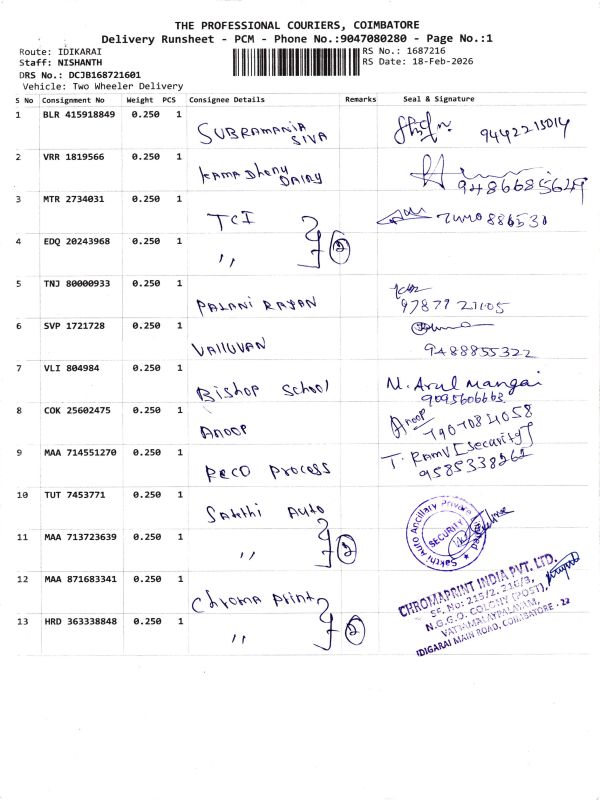 THE PROFESSIONAL COURIERS, COIMBATORE
Delivery Runsheet - PCM - Phone No.:9047080280 - Page No.:1
Route: IDIKARAI
RS No.: 1687216
Staff: NISHANTH
RS Date: 18-Feb-2026
DRS No.: DCJB168721601
Vehicle: Two Wheeler Delivery
S No Consignment No Weight PCS Consignee Details Remarks Seal & Signature
1 BLR 415918849 0.250 1
SUBRAMANIA SIVA 9442215014
2 VRR 1819566 0.250 1
Kamadhenu DAIRY 9486685649
3 MTR 2734031 0.250 1
TCI
4 EDQ 20243968 0.250 1
,, 2
5 TNJ 80000933 0.250 1
PALANI RAJAN
6 SVP 1721728 0.250 1
VALLUVAN 9488855322
7 VLI 804984 0.250 1
Bishop School M. Arul Mangai
9095606663
8 COK 25602475 0.250 1
Anoop Anoop 7907084058
9 MAA 714551270 0.250 1
RECO PROCESS T. RAMU [Security]
9585338262
10 TUT 7453771 0.250 1
Sakthi Auto
Sakthi Auto Ancillary Private Limited
SECURITY
11 MAA 713723639 0.250 1
,, 2
12 MAA 871683341 0.250 1
Chroma Print
CHROMAPRINT INDIA PVT. LTD.
SF. No: 215/2, 216/3,
N.G.G.O. COLONY (POST),
VATTAMALAYPALAYAM,
IDIGARAI MAIN ROAD, COIMBATORE - 22
13 HRD 363338848 0.250 1
,, 2